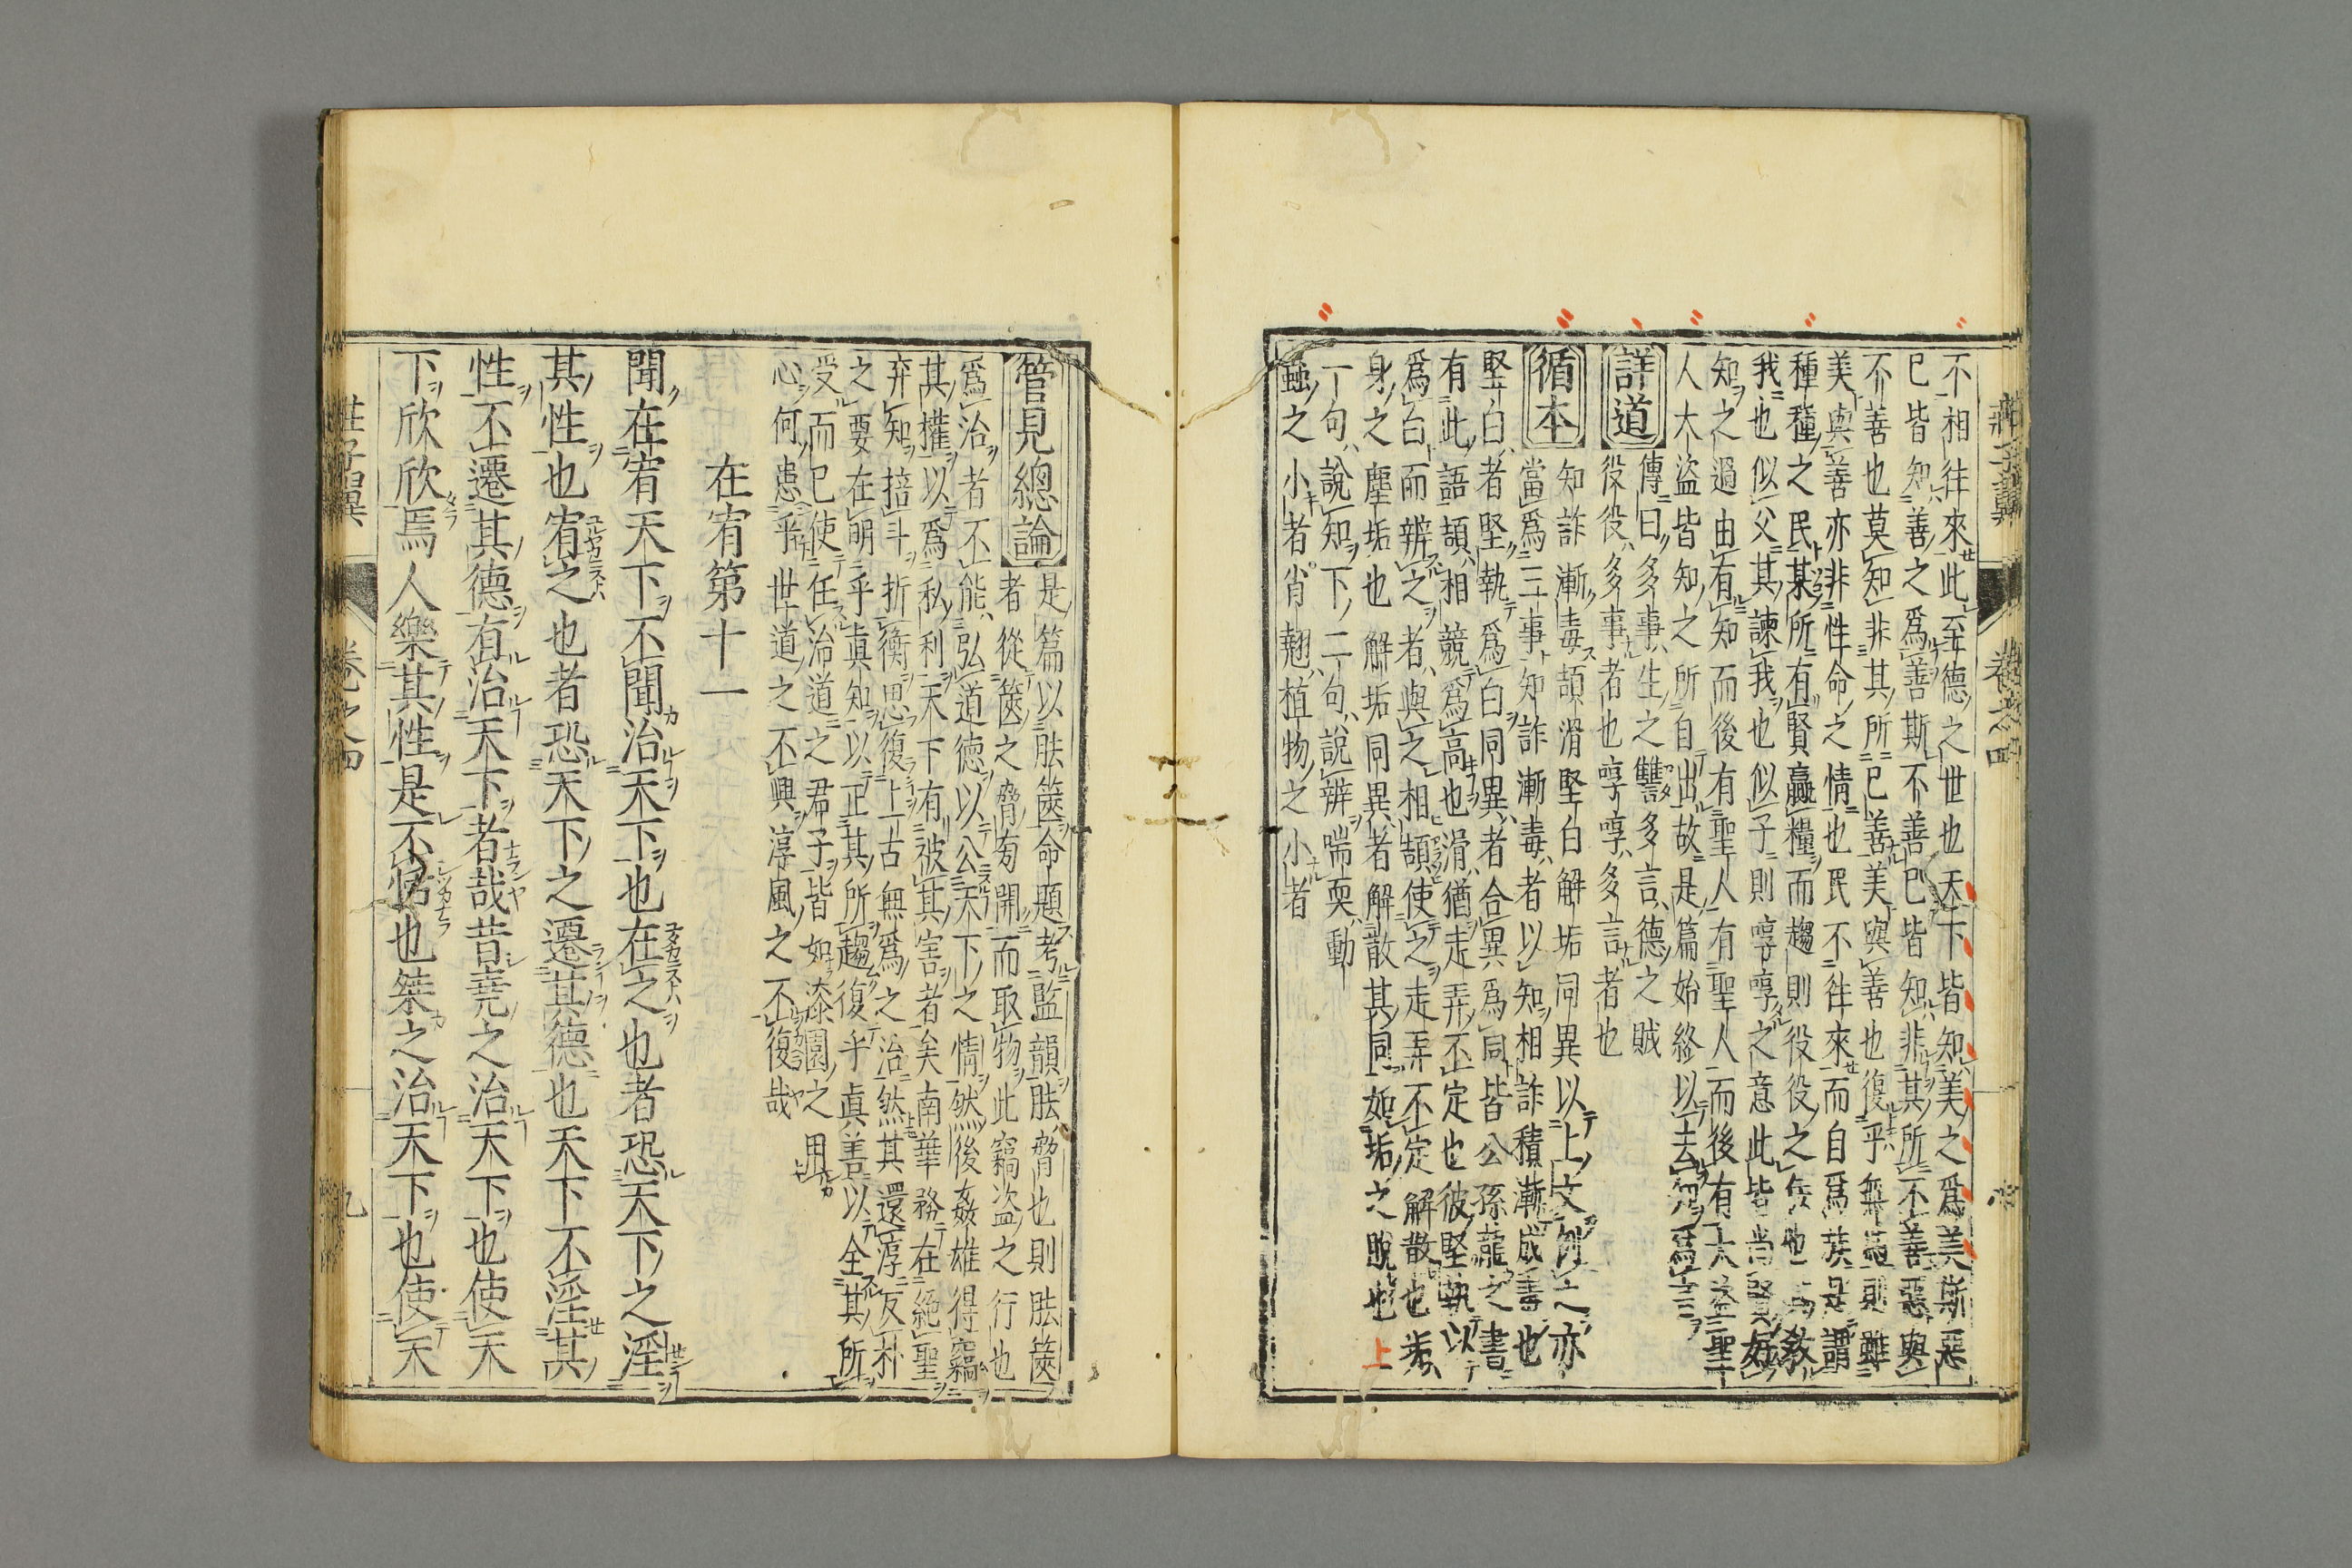 不相往來此至德之世也天下皆知美之爲美斯惡
已皆知善之爲善斯不善已皆知非其所不善惡與
不善也莫知非其所已善美與善也復乎無 則雖
美與善亦非性命之情也民不往來而自爲族是謂
種種之民某所有賢贏糧而趨則役役之 也 教
我也似父其諫我也似子則啍啍之意此皆尚賢好
知之過由有知而後有聖人有聖人而後有大盜聖
人大盜皆知之所自出故是篇始終以去知爲言
詳道
傳曰多事生之讐多言德之賊
役役多事者也啍啍多言者也
循本
知詐漸毒頡滑堅白解垢同異以上文例之亦
當爲三事知詐漸毒者以知相詐積漸成毒也
堅白者堅執爲白同異者合異爲同皆公孫龍之書
有此語頡相競爲高也滑猶走弄不定也彼堅執以
爲白而辨之者與之相頡使之走弄不定解散也垢
身之塵垢也解垢同異者解散其同如垢之脫也上
一句說知下二句說辨喘耎動
蟲之小者肖翹植物之小者
管見總論
是篇以胠篋命題考監韻胠脅也則胠篋
者從篋之脅旁開而取物此竊盜之行也
爲治者不能弘道德以公天下之情然後姦雄得竊
其權以爲私利天下有被其害者矣南華務在絕聖
弃知掊斗折衡思復上古無爲之治然其還淳反朴
之要在明乎真知以正其所趨復乎真善以全其所
受而已使任治道之君子皆如漆園之用
心何患乎世道之不興淳風之不復哉
在宥第十一
聞在宥天下不聞治天下也在之也者恐天下之淫
其性也宥之也者恐天下之遷其德也天下不淫其
性不遷其德有治天下者哉昔堯之治天下也使天
下欣欣焉人樂其性是不恬也桀之治天下也使天
莊子翼 卷之四 九